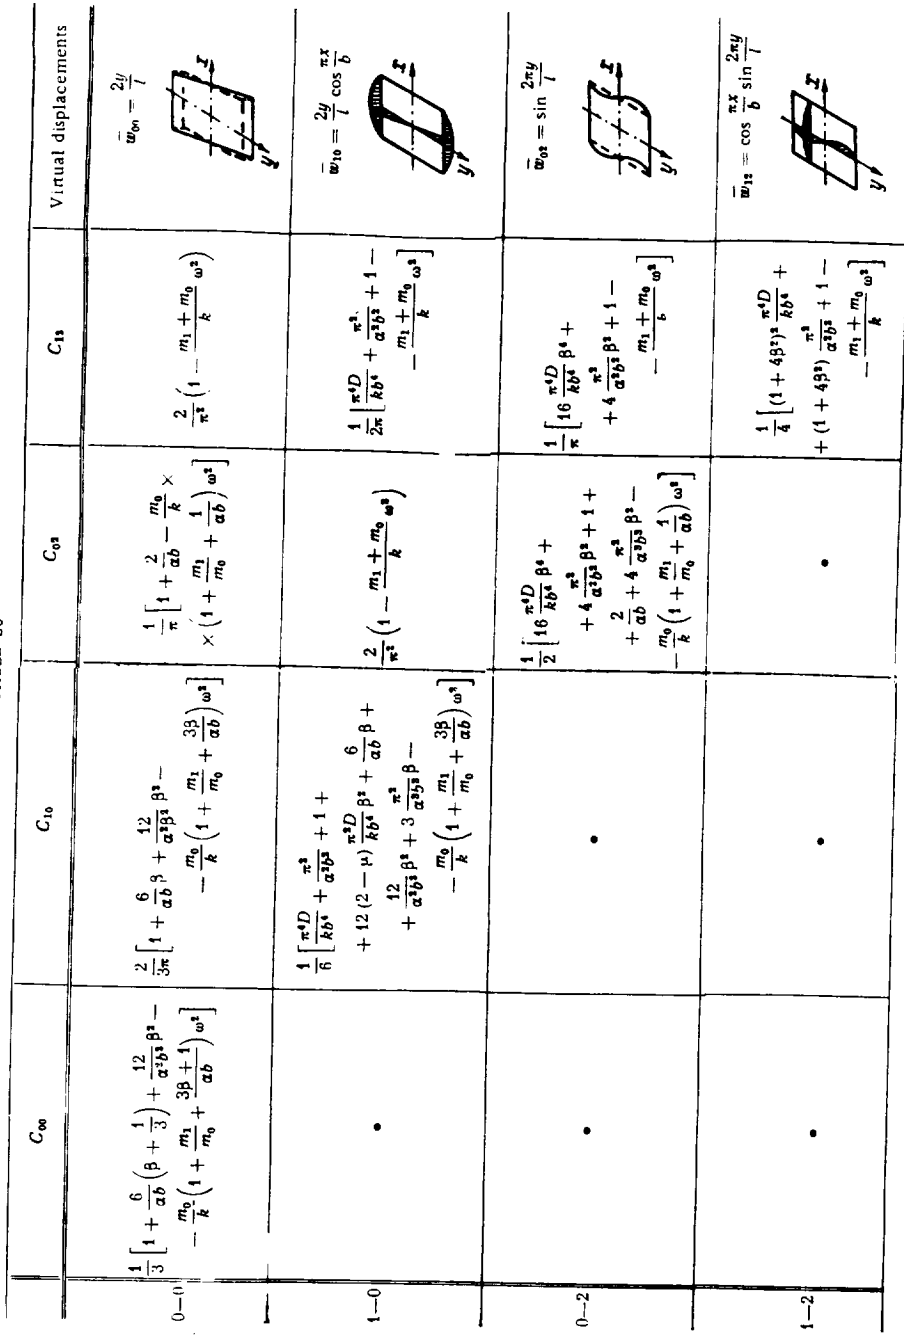 C₀₀ C₁₀ C₀₂ C₁₂ Virtual displacements
0—0
1/3 [1 + 6/(αb) (β + 1/3) + 12/(α²b²) β² —
— m₀/k (1 + m₁/m₀ + (3β + 1)/(αb)) ω²]
2/(3π) [1 + 6/(αb) β + 12/(α²β²) β² —
— m₀/k (1 + m₁/m₀ + 3β/(αb)) ω²]
1/π [1 + 2/(αb) — m₀/k ×
× (1 + m₁/m₀ + 1/(αb)) ω²]
2/π² (1 — (m₁ + m₀)/k ω²)
w̄₀₀ = 2y/l
x
y
1—0
•
1/6 [π⁴D/(kb⁴) + π²/(α²b²) + 1 +
+ 12 (2 — μ) π²D/(kb⁴) β² + 6/(αb) β +
+ 12/(α²b²) β² + 3 π²/(α³b³) β —
— m₀/k (1 + m₁/m₀ + 3β/(αb)) ω²]
2/π² (1 — (m₁ + m₀)/k ω²)
1/(2π) [π⁴D/(kb⁴) + π²/(α²b²) + 1 —
— (m₁ + m₀)/k ω²]
w̄₁₀ = 2y/l cos πx/b
x
y
0—2
•
•
1/2 [16 π⁴D/(kb⁴) β⁴ +
+ 4 π²/(α²b²) β² + 1 +
+ 2/(αb) + 4 π²/(α³b³) β² —
— m₀/k (1 + m₁/m₀ + 1/(αb)) ω²]
1/π [16 π⁴D/(kb⁴) β⁴ +
+ 4 π²/(α²b²) β² + 1 —
— (m₁ + m₀)/b ω²]
w̄₀₂ = sin 2πy/l
x
y
1—2
•
•
•
1/4 [(1 + 4β²)² π⁴D/(kb⁴) +
+ (1 + 4β²) π²/(α²b²) + 1 —
— (m₁ + m₀)/k ω²]
w̄₁₂ = cos πx/b sin 2πy/l
x
y